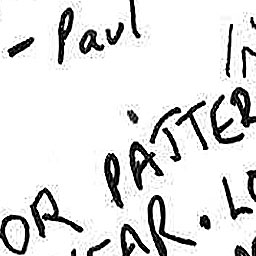 - Paul
OR PATTER
EAR. LO